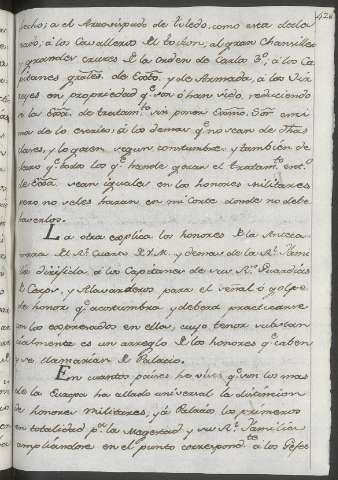 428
recho; a el Arzobispado de Toledo como esta decla
rado, á los Cavalleros del toison, al gran Chanciller
y grandes cruzes de la Orden de Carlos 3º, á los Ca
pitanes grâles. de Exto. y de Armada, á los Vir
reyes en propiedad qe. son ó han sido, reduciendo
á la Exâ. de tratamto. sin poner Exmo. Sor. enci
ma de lo escrito á los demas qe. no sean de dhas
clases, y lo gozen segun constumbre y tambien de
claro qe. todos los qe. hande gozar el tratamto. ent.º
de Exâ. sean iguales en los honores militares
pero no seles haran en mi Corte donde no debe
haverlos.
La otra explica los honores de la Anteca
mara del Rl. Cuarto de V.M. y demas de la Rl. Fami
lia dirijida á los Capitanes de sus Rs. Guardias
de Corps, y Alavarderos para el señal ó golpe
de honor qe. acostumbra y debera practicarse
con los expresados en ellas, cuyo tenor substan
cialmente es un arreglo de los honores qe. caben
y se llamarian de Palacio.
En cuantos paises he visto qe. son los mas
de la Europa he allado universal la distincion
de honores militares, y á Palacio los primeros
en totalidad pa. la Magestad y su Rl. Familia
ampliandose en el punto correspondte. á los Gefes